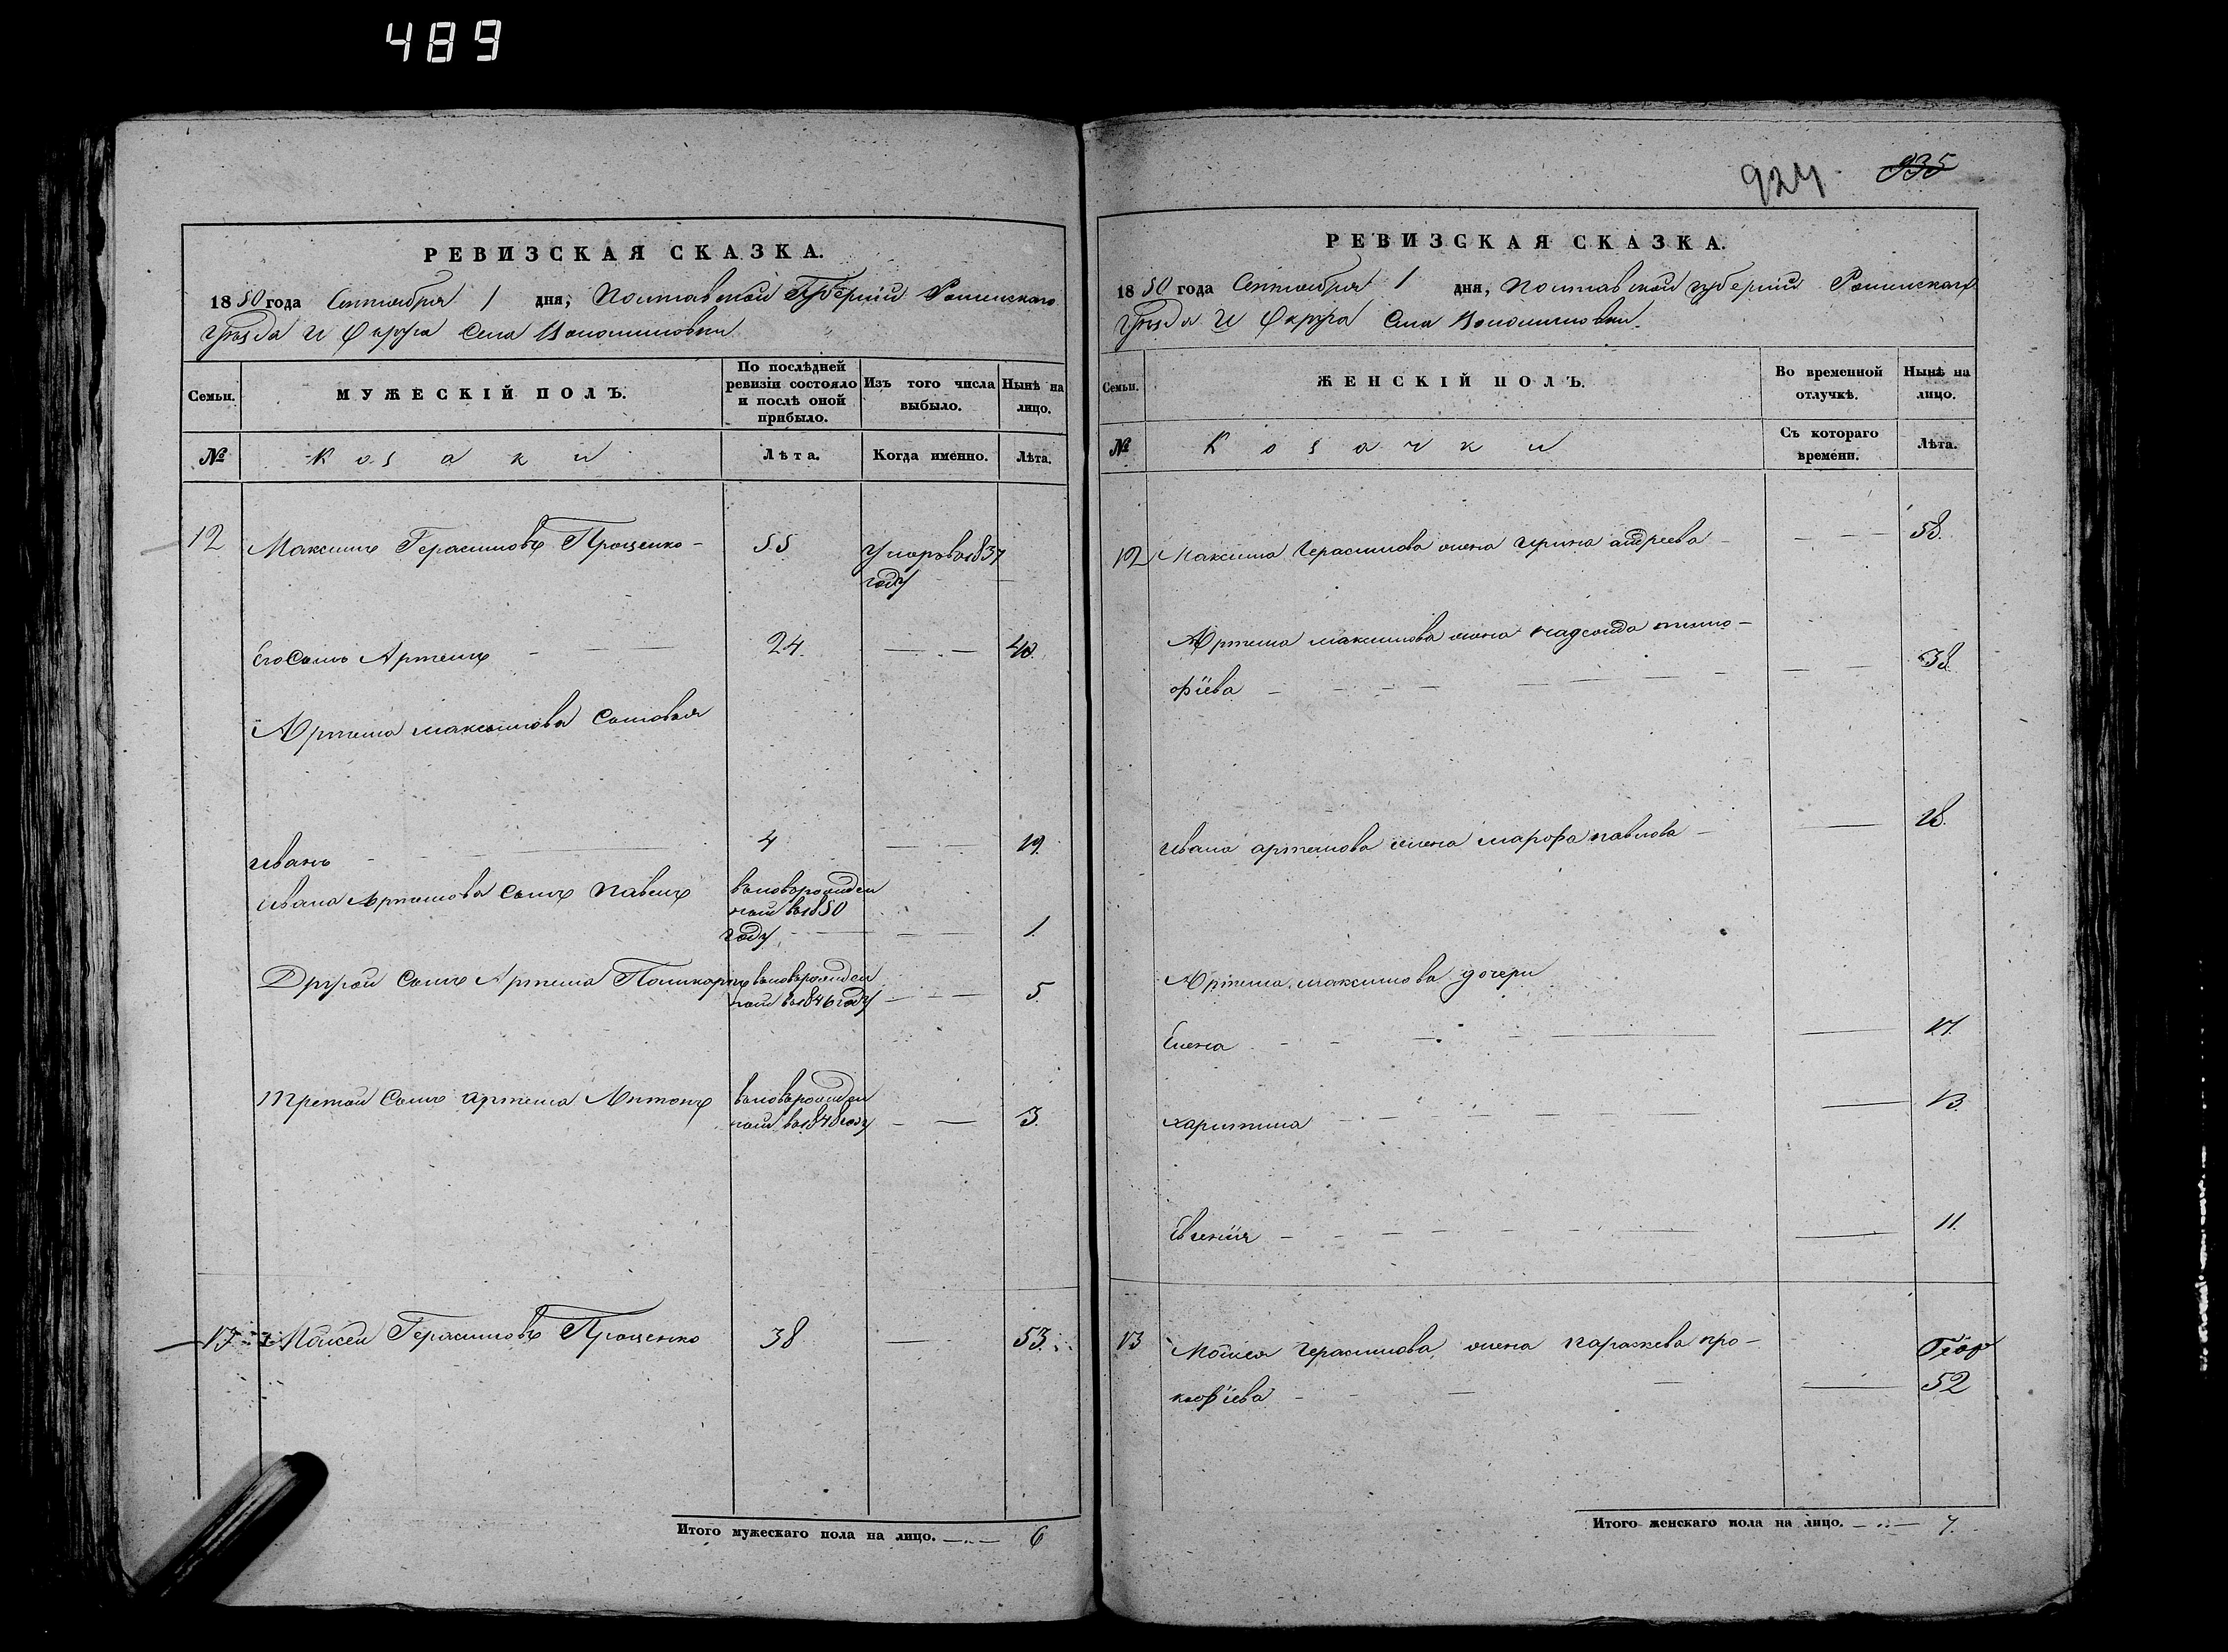 489
РЕВИЗСКАЯ СКАЗКА.
1850 года Сентября 1 дня, Полтавской Губернїи Роменскаго
Уѣзда и Округа Села Волошиновки
Семьи.
МУЖЕСКІЙ ПОЛЪ.
По послѣдней ревизіи состояло и послѣ оной прибыло.
Изъ того числа выбыло.
Нынѣ на лицо.
№
Козаки
Лѣта.
Когда именно.
Лѣта.
12 Максимъ Герасимовъ Проценко - 55 Умеръ въ 1837
году
Его Сынъ Артемъ 24. 40.
Артема Максимова Сыновья
Иванъ 4 19.
Ивана Артемова Сынъ Павелъ въновьрожден
ный въ 1850
году 1.
Другой Сынъ Артема Поликарпъ въновьрожден
ный въ 1846 году 5.
Третой Сынъ Артема Антонъ въновьрожден
ный въ 1848 году 3.
13 Мойсей Герасимовъ Проценко 38 53.
Итого мужескаго пола на лицо. 6
924 935
РЕВИЗСКАЯ СКАЗКА.
1850 года Сентября 1 дня, Полтавской губернїи Роменскаго
Уѣзда и Округа Села Волошиновки.
Семьи.
ЖЕНСКІЙ ПОЛЪ.
Во временной отлучкѣ.
Нынѣ на лицо.
№
Козачки
Съ котораго времени.
Лѣта.
12 Максима Герасимова жена Ирина андреева 58.
Артема максимова жена
орїева 38.
Ивана артемова жена марфа павлова 18.
Артема максимова дочери
Елена 17.
харитина 13.
Евгенїя 11.
13 Мойсея Герасимова жена параскева про-
кофїева 52
Итого женскаго пола на лицо. 7.